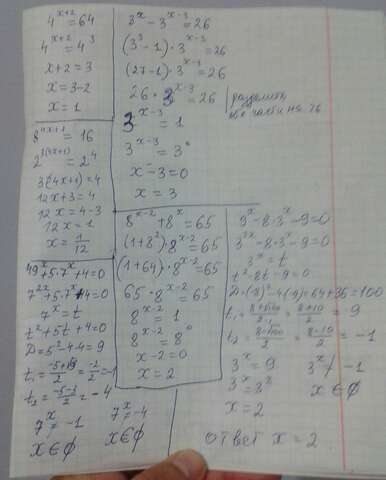 4^(x+2) = 64
4^(x+2) = 4^3
x+2 = 3
x = 3-2
x = 1
8^(4x+1) = 16
2^(3(4x+1)) = 2^4
3(4x+1) = 4
12x+3 = 4
12x = 4-3
12x = 1
x = 1/12
49^x+5·7^x+4=0
7^(2x)+5·7^x+4=0
7^x = t
t^2+5t+4=0
D=5^2-4·4=9
t₁=(-5+√9)/2=-2/2=-1
t₂=(-5-3)/2=-4
7^x≠-1
x∈∅
7^x≠-4
x∈∅
3^x - 3^(x-3) = 26
(3^3-1)·3^(x-3) = 26
(27-1)·3^(x-3) = 26
26·3^(x-3) = 26 | разделить
обе части на 26
3^(x-3) = 1
3^(x-3) = 3^0
x-3=0
x = 3
8^(x-2)+8^x=65
(1+8^2)·8^(x-2)=65
(1+64)·8^(x-2)=65
65·8^(x-2)=65
8^(x-2) = 1
8^(x-2) = 8^0
x-2=0
x = 2
9^x-8·3^x-9=0
3^(2x)-8·3^x-9=0
3^x = t
t^2-8t-9=0
D=(8)^2-4·(-9)=64+36=100
t₁=(8+√100)/2·1=(8+10)/2=9
t₂=(8-√100)/2=(8-10)/2=-1
3^x = 9
3^x = 3^2
x = 2
3^x≠-1
x∈∅
ответ x = 2